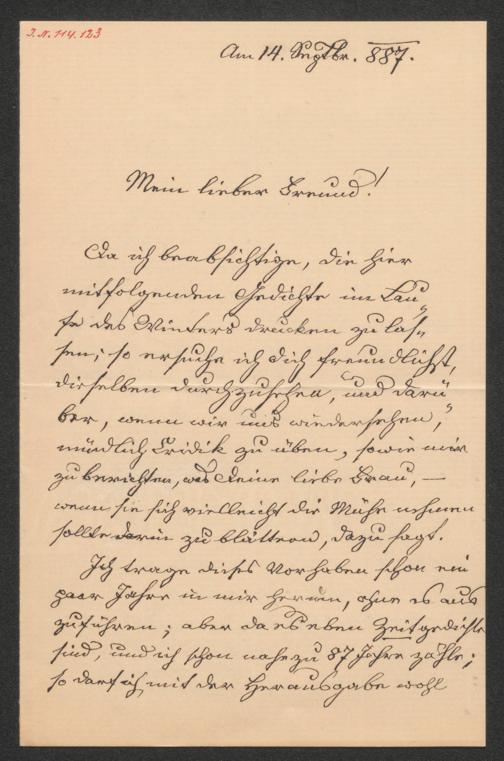 J.N. 114.123
Am 14. Septbr. 887.
Mein lieber Freund!
Da ich beabsichtige, die hier
mitfolgenden Gedichte im Lau„
fe des Winters drucken zu las„
sen; so ersuche ich Dich freundlichst,
dieselben durchzusehen, und darü„
ber, wenn wir uns wiedersehen,
mündlich Critik zu üben, sowie mir
zu berichten, was Deine liebe Frau, —
wenn sie sich vielleicht die Mühe nehmen
sollte darin zu blättern, dazu sagt.
Ich trage dieses Vorhaben schon ein
paar Jahre in mir herum, ohne es aus
zuführen; aber da es eben Zeitgedichte
sind, und ich schon nahezu 87 Jahre zähle;
so darf ich mit der Herausgabe wohl